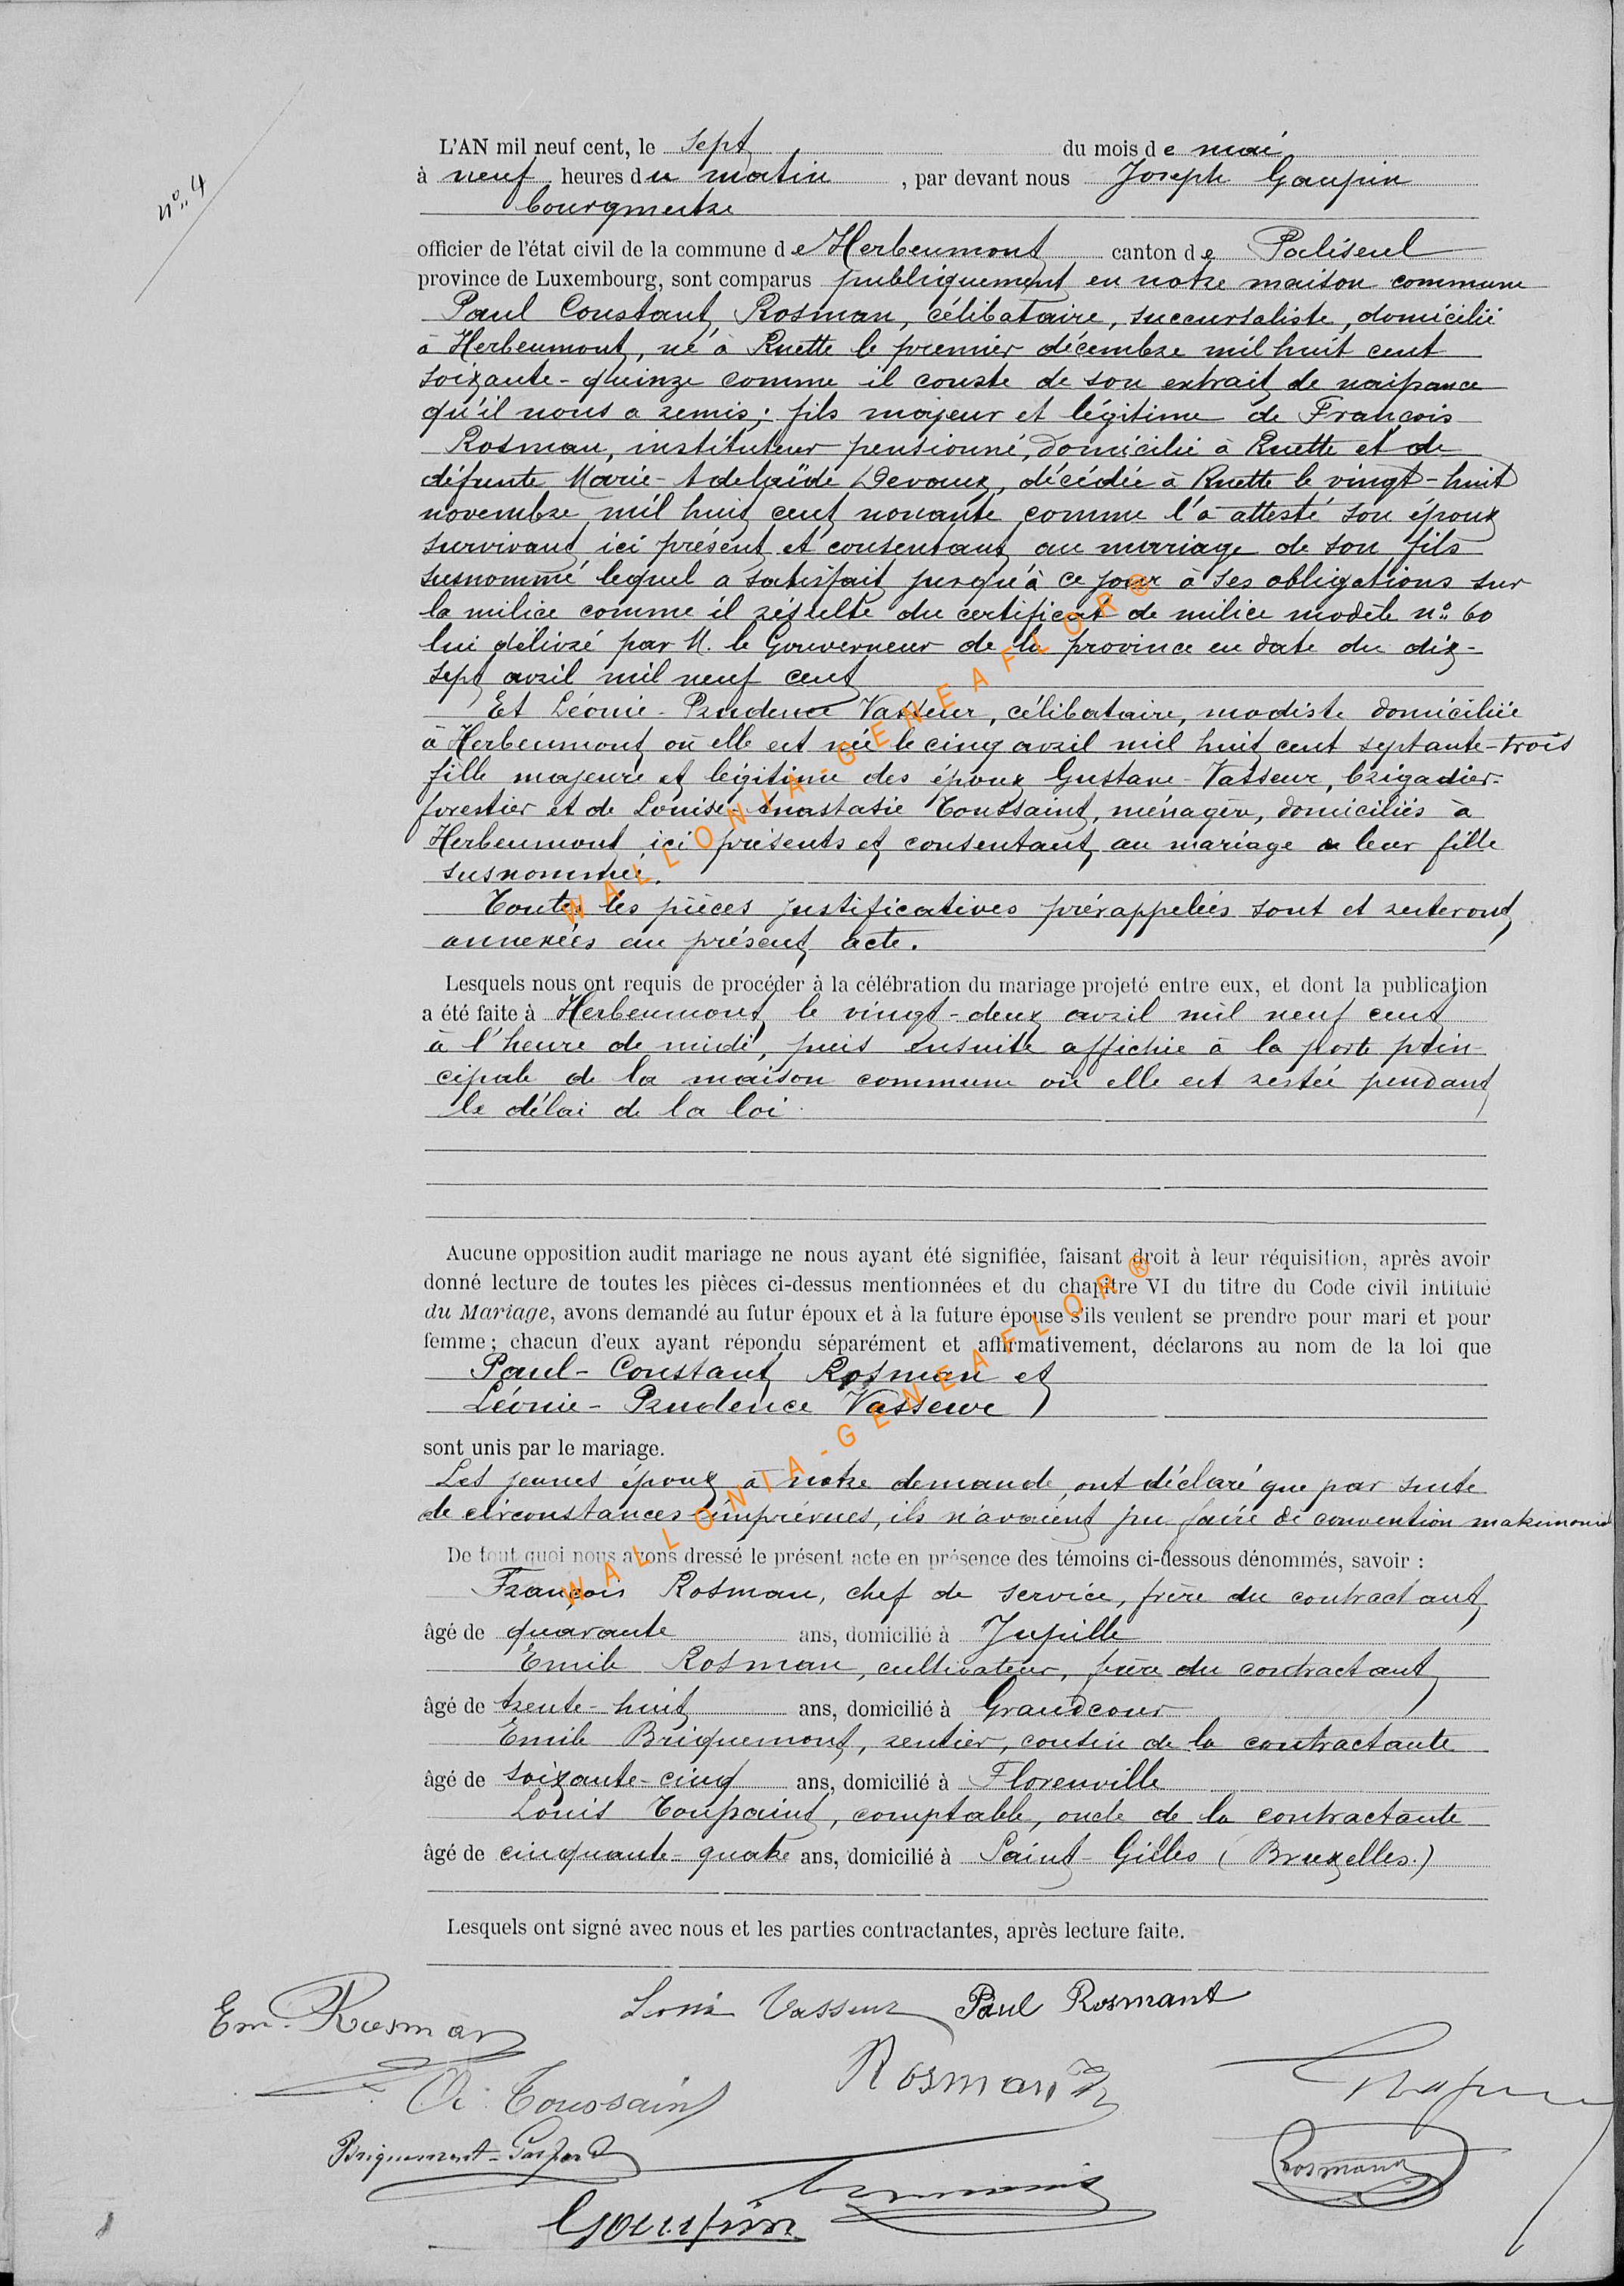 nº 4
L'AN mil neuf cent, le sept du mois de mai
à neuf heures du matin, par devant nous Joseph Goupin
bourgmestre
officier de l'état civil de la commune de Herbeumont canton de Paliseul
province de Luxembourg, sont comparus publiquement en notre maison commune
Paul Constant Rosman, célibataire, succursaliste, domicilié
à Herbeumont, né à Ruette le premier décembre mil huit cent
soixante-quinze comme il conste de son extrait de naissance
qu'il nous a remis; fils majeur et légitime de François
Rosman, instituteur pensionné, domicilié à Ruette et de
défunte Marie-Adelaïde Devaux, décédée à Ruette le vingt-huit
novembre mil huit cent nonante comme l'a attesté son époux
survivant ici présent et consentant au mariage de son fils
susnommé lequel a satisfait jusqu'à ce jour à ses obligations sur
la milice comme il résulte du certificat de milice modèle nº 60
lui délivré par M. le Gouverneur de la province en date du dix-
sept avril mil neuf cent
Et Léonie-Prudence Vasseur, célibataire, modiste domiciliée
à Herbeumont où elle est née le cinq avril mil huit cent septante-trois
fille majeure et légitime des époux Gustave Vasseur, brigadier-
forestier et de Louise-Anastasie Toussaint, ménagère, domiciliés à
Herbeumont ici présents et consentant au mariage de leur fille
susnommée.
Toutes les pièces justificatives prérappelées sont et resteront
annexées au présent acte.
Lesquels nous ont requis de procéder à la célébration du mariage projeté entre eux, et dont la publication
a été faite à Herbeumont le vingt-deux avril mil neuf cent
à l'heure de midi, puis ensuite affichée à la porte prin-
cipale de la maison commune où elle est restée pendant
le délai de la loi.
Aucune opposition audit mariage ne nous ayant été signifiée, faisant droit à leur réquisition, après avoir
donné lecture de toutes les pièces ci-dessus mentionnées et du chapitre VI du titre du Code civil intitulé
du Mariage, avons demandé au futur époux et à la future épouse s'ils veulent se prendre pour mari et pour
femme; chacun d'eux ayant répondu séparément et affirmativement, déclarons au nom de la loi que
Paul-Constant Rosman et
Léonie-Prudence Vasseur
sont unis par le mariage.
Les jeunes époux à notre demande, ont déclaré que par suite
de circonstances imprévues, ils n'avaient pu faire de convention matrimonial
De tout quoi nous avons dressé le présent acte en présence des témoins ci-dessous dénommés, savoir :
François Rosman, chef de service, frère du contractant
âgé de quarante ans, domicilié à Jupille
Emile Rosman, cultivateur, frère du contractant
âgé de trente-huit ans, domicilié à Grandcour
Emile Briquemont, rentier, cousin de la contractante
âgé de soixante-cinq ans, domicilié à Florenville
Louis Toussaint, comptable, oncle de la contractante
âgé de cinquante-quatre ans, domicilié à Saint-Gilles (Bruxelles.)
Lesquels ont signé avec nous et les parties contractantes, après lecture faite.
Em. Rosman
Vasseur Paul Rosmant
Toussaint
Rosman
Briquemont
Rosmant
Goupin
WALLONIA-GENEAFLOR®
WALLONIA-GENEAFLOR®